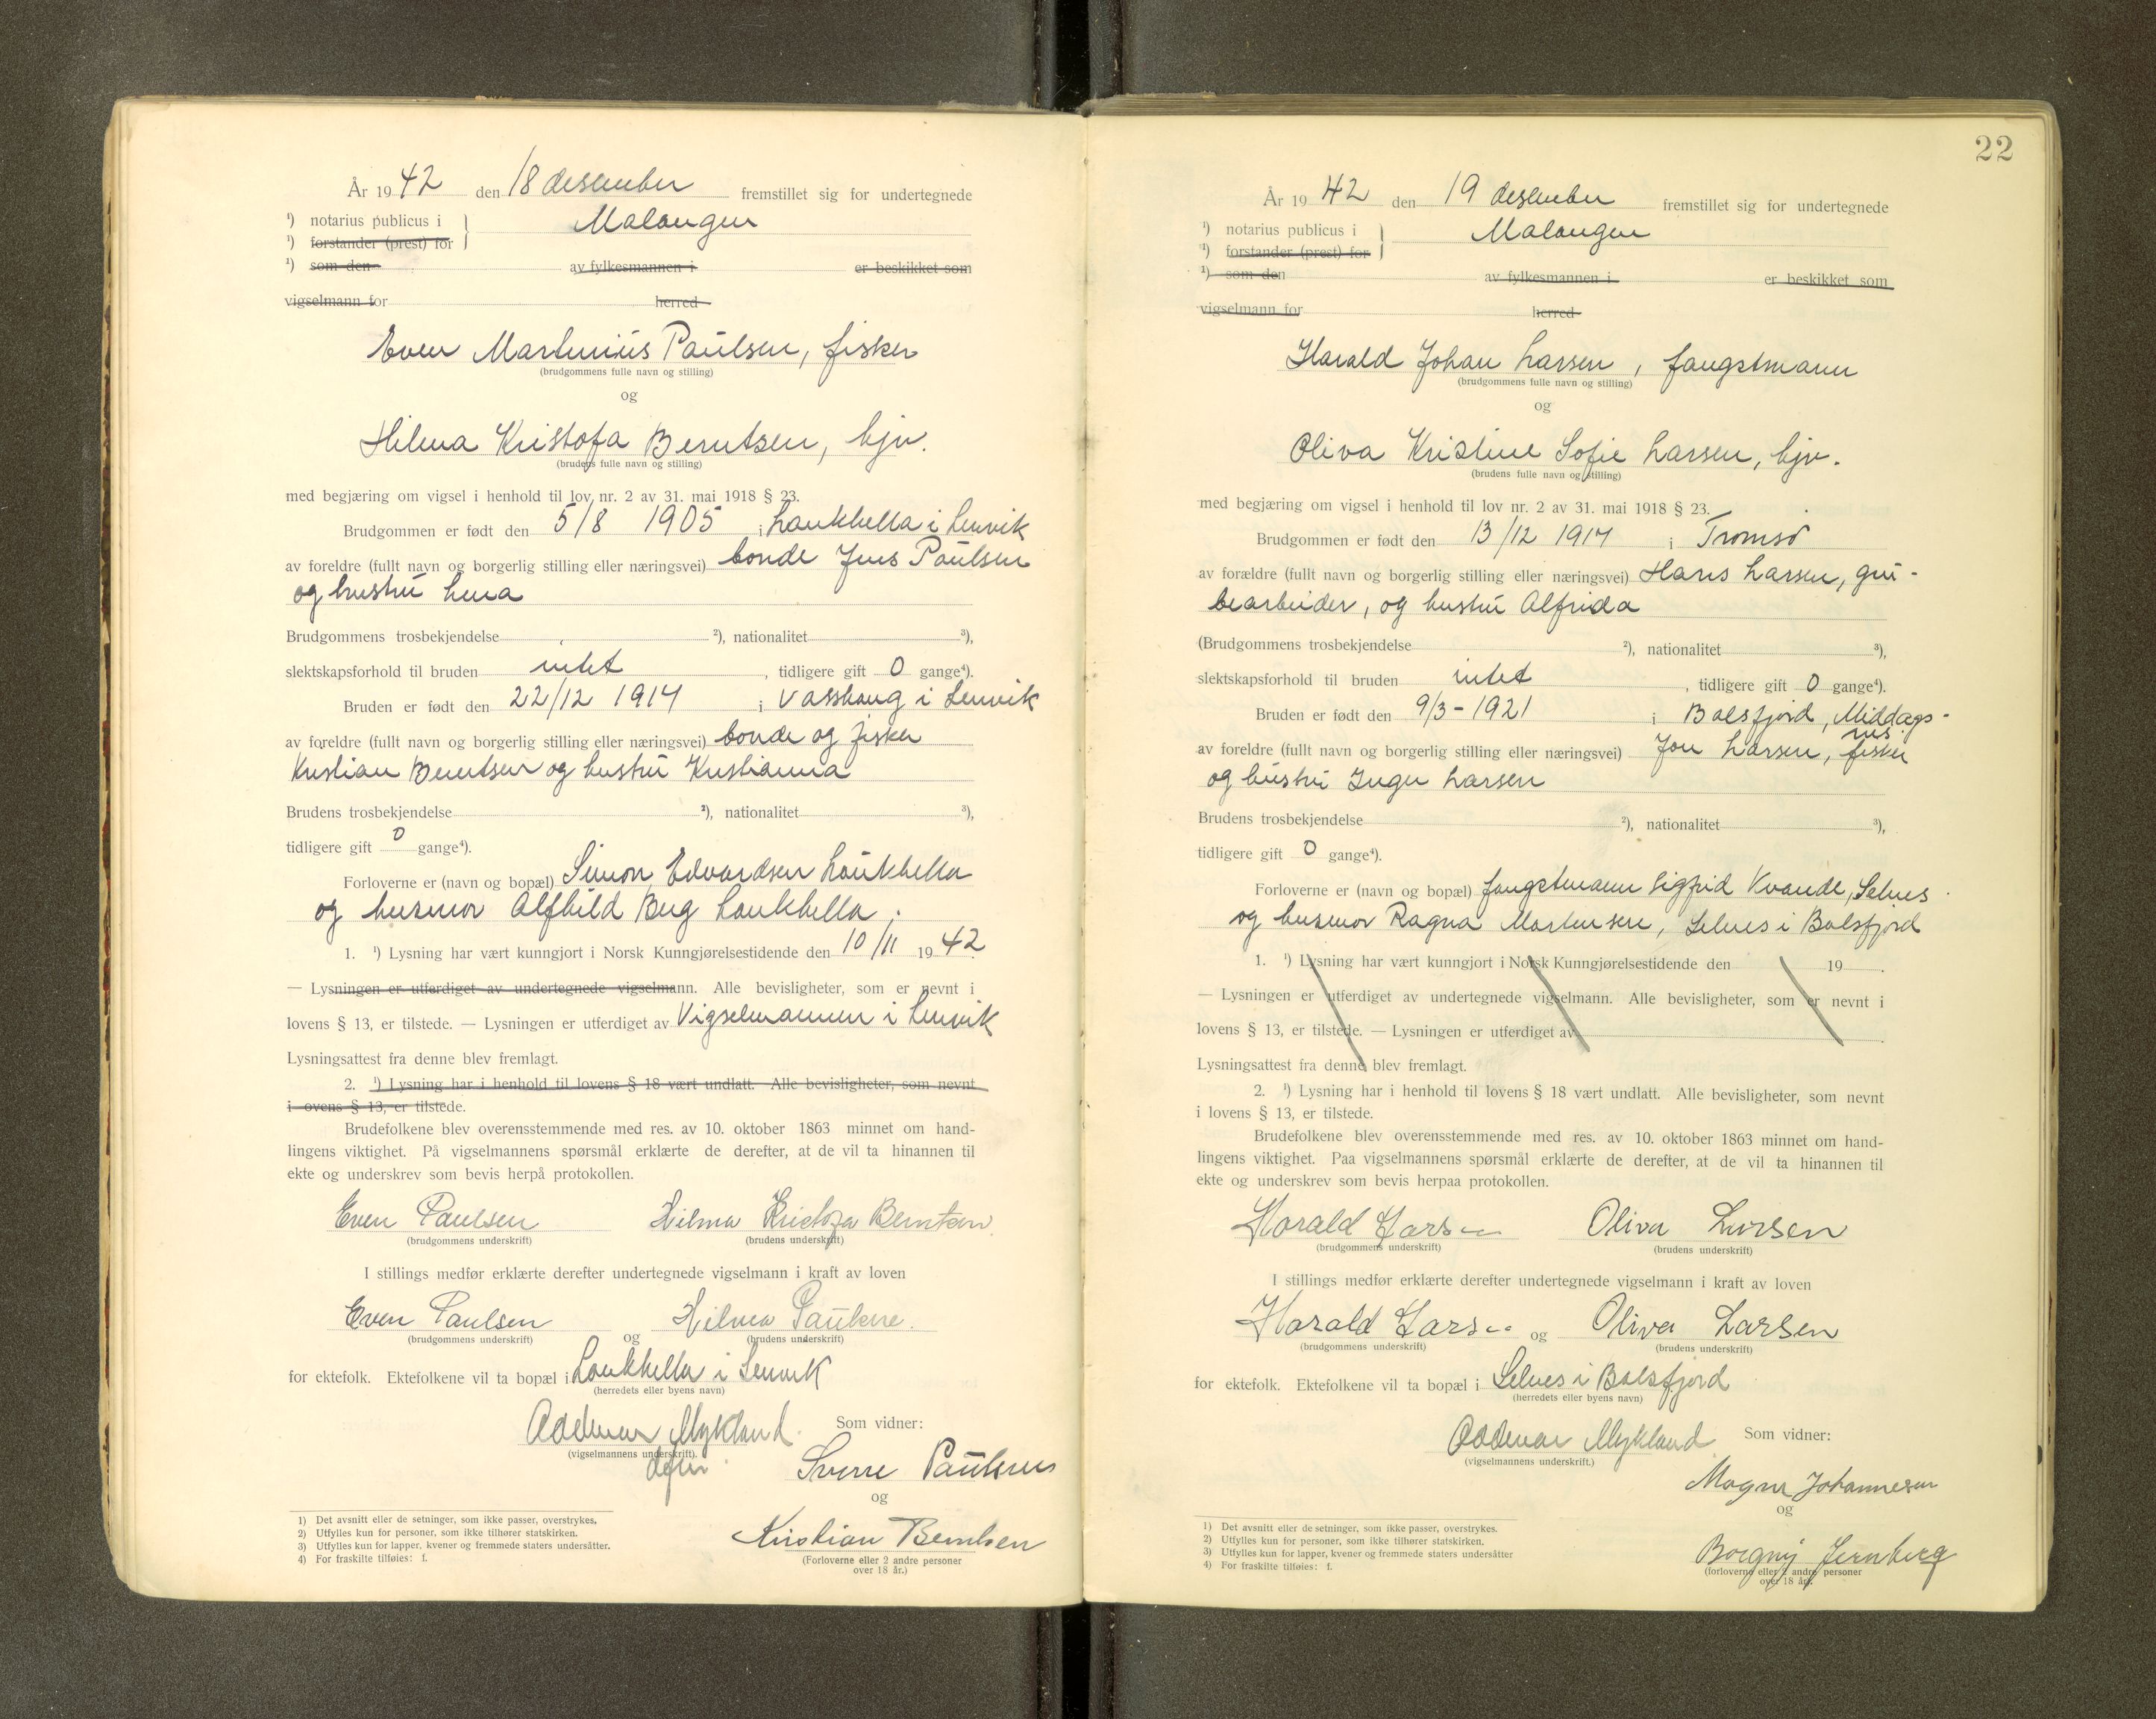 År 1942 den 18 desember fremstillet sig for undertegnede
¹) notarius publicus i } Malangen
¹) forstander (prest) for
¹) som den av fylkesmannen i er beskikket som
vigselmann for herred
Even Martinius Paulsen, fisker
(brudgommens fulle navn og stilling)
og
Hilma Kristofa Berntsen, hjv.
(brudens fulle navn og stilling)
med begjæring om vigsel i henhold til lov nr. 2 av 31. mai 1918 § 23.
Brudgommen er født den 5/8 1905 i Laukhella i Lenvik
av foreldre (fullt navn og borgerlig stilling eller næringsvei) bonde Jens Paulsen
og hustru Lina
Brudgommens trosbekjendelse ²), nationalitet ³),
slektskapsforhold til bruden intet, tidligere gift 0 gange⁴).
Bruden er født den 22/12 1914 i Vasshaug i Lenvik
av foreldre (fullt navn og borgerlig stilling eller næringsvei) bonde og fisker
Kristian Berntsen og hustru Kristianna
Brudens trosbekjendelse ²), nationalitet ³),
tidligere gift 0 gange⁴).
Forloverne er (navn og bopæl) Simon Edvardsen Laukhella
og husmor Alfhild Berg Laukhella.
1. ¹) Lysning har vært kunngjort i Norsk Kunngjørelsestidende den 10/11 1942
— Lysningen er utferdiget av undertegnede vigselmann. Alle bevisligheter, som er nevnt i
lovens § 13, er tilstede. — Lysningen er utferdiget av Vigselmannen i Lenvik
Lysningsattest fra denne blev fremlagt.
2. ¹) Lysning har i henhold til lovens § 18 vært undlatt. Alle bevisligheter, som nevnt
i ovens § 13, er tilstede.
Brudefolkene blev overensstemmende med res. av 10. oktober 1863 minnet om hand-
lingens viktighet. På vigselmannens spørsmål erklærte de derefter, at de vil ta hinannen til
ekte og underskrev som bevis herpå protokollen.
Even Paulsen Hilma Kristofa Berntsen
(brudgommens underskrift) (brudens underskrift)
I stillings medfør erklærte derefter undertegnede vigselmann i kraft av loven
Even Paulsen og Hilma Paulsen.
(brudgommens underskrift) (brudens underskrift)
for ektefolk. Ektefolkene vil ta bopæl i Laukhella i Lenvik
(herredets eller byens navn)
Oddmar Mykland Som vidner:
(vigselmannens underskrift).
Sverre Paulsen
og
Kristian Berntsen
(Forloverne eller 2 andre personer
over 18 år.)
1) Det avsnitt eller de setninger, som ikke passer, overstrykes.
2) Utfylles kun for personer, som ikke tilhører statskirken.
3) Utfylles kun for lapper, kvener og fremmede staters undersåtter.
4) For fraskilte tilføies: f.
22
År 1942 den 19 desember fremstillet sig for undertegnede
¹) notarius publicus i } Malangen
¹) forstander (prest) for
¹) som den av fylkesmannen i er beskikket som
vigselmann for herred
Harald Johan Larsen, fangstmann
(brudgommens fulle navn og stilling)
og
Oliva Kristine Sofie Larsen, hjv.
(brudens fulle navn og stilling)
med begjæring om vigsel i henhold til lov nr. 2 av 31. mai 1918 § 23.
Brudgommen er født den 13/12 1917 i Tromsø
av forældre (fullt navn og borgerlig stilling eller næringsvei) Hans Larsen, gru-
bearbeider, og hustru Alfrida
(Brudgommens trosbekjendelse ²), nationalitet ³),
slektskapsforhold til bruden intet, tidligere gift 0 gange⁴).
Bruden er født den 9/3 - 1921 i Balsfjord, Middags-
nes.
av foreldre (fullt navn og borgerlig stilling eller næringsvei) Jon Larsen, fisker
og hustru Inger Larsen
Brudens trosbekjendelse ²), nationalitet ³),
tidligere gift 0 gange⁴).
Forloverne er (navn og bopæl) fangstmann Sigfrid Kvande, Selnes
og husmor Ragna Martensen, Selnes i Balsfjord
1. ¹) Lysning har vært kunngjort i Norsk Kunngjørelsestidende den 19 .
— Lysningen er utferdiget av undertegnede vigselmann. Alle bevisligheter, som er nevnt i
lovens § 13, er tilstede. — Lysningen er utferdiget av .
Lysningsattest fra denne blev fremlagt.
2. ¹) Lysning har i henhold til lovens § 18 vært undlatt. Alle bevisligheter, som nevnt
i lovens § 13, er tilstede.
Brudefolkene blev overensstemmende med res. av 10. oktober 1863 minnet om hand-
lingens viktighet. Paa vigselmannens spørsmål erklærte de derefter, at de vil ta hinannen til
ekte og underskrev som bevis herpaa protokollen.
Harald Larsen Oliva Larsen
(brudgommens underskrift) (brudens underskrift)
I stillings medfør erklærte derefter undertegnede vigselmann i kraft av loven
Harald Larsen og Oliva Larsen
(brudgommens underskrift) (brudens underskrift)
for ektefolk. Ektefolkene vil ta bopæl i Selnes i Balsfjord
(herredets eller byens navn)
Oddmar Mykland Som vidner:
(vigselmannens underskrift.)
Magne Johannesen
og
Borgny Jernberg
(forloverne eller 2 andre personer
over 18 år).
1) Det avsnitt eller de setninger, som ikke passer, overstrykes.
2) Utfylles kun for personer, som ikke tilhører statskirken.
3) Utfylles kun for lapper, kvener og fremmede staters undersåtter
4) For fraskilte tilføies: f.